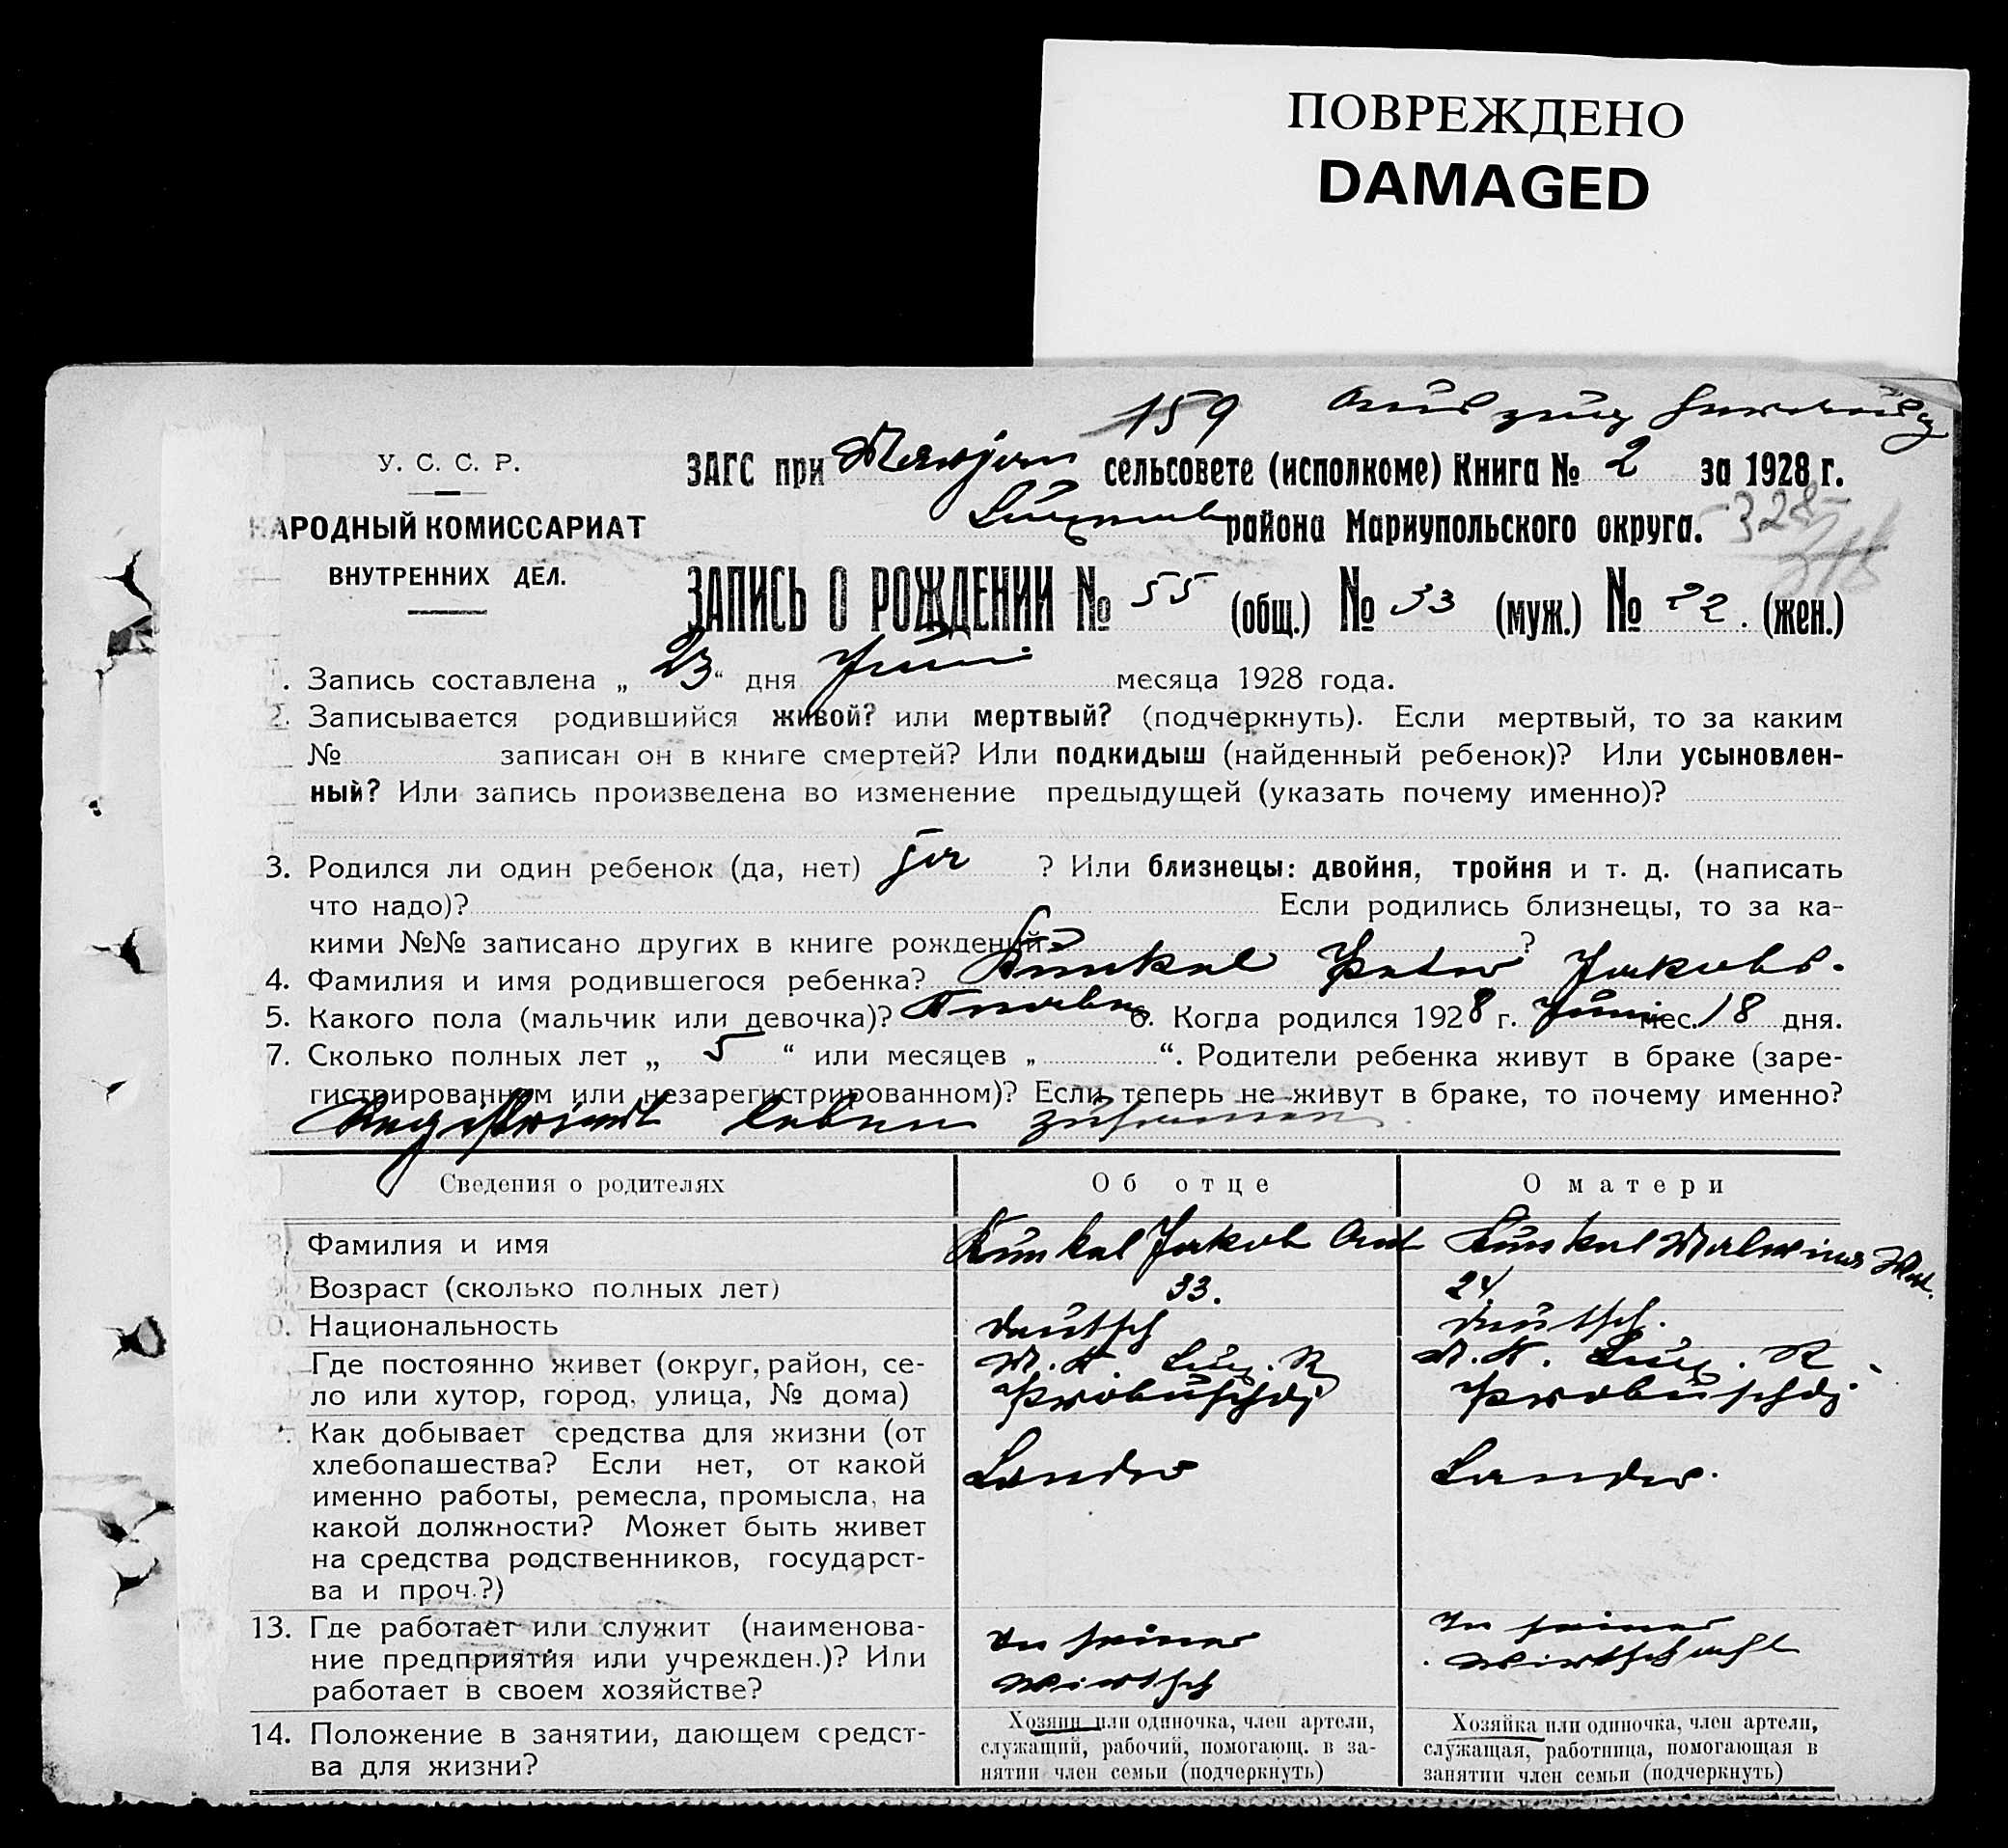 ПОВРЕЖДЕНО
DAMAGED
159
У. С. С. Р.
НАРОДНЫЙ КОМИССАРИАТ
ВНУТРЕННИХ ДЕЛ.
ЗАГС при сельсовете (исполкоме) Книга № 2 за 1928 г.
района Мариупольского округа.
328
ЗАПИСЬ О РОЖДЕНИИ № 55 (общ.) № 33 (муж.) № 22. (жен.)
. Запись составлена „ 23 “ дня Juni месяца 1928 года.
2. Записывается родившийся живой? или мертвый? (подчеркнуть). Если мертвый, то за каким
№ записан он в книге смертей? Или подкидыш (найденный ребенок)? Или усыновлен-
ный? Или запись произведена во изменение предыдущей (указать почему именно)?
3. Родился ли один ребенок (да, нет) ja ? Или близнецы: двойня, тройня и т. д. (написать
что надо)? Если родились близнецы, то за ка-
кими №№ записано других в книге рождений ?
4. Фамилия и имя родившегося ребенка? Kunkel Peter Jakobs.
5. Какого пола (мальчик или девочка)? Knabe 6. Когда родился 1928 г. Juni мес. 18 дня.
7. Сколько полных лет „ 5 “ или месяцев „ “. Родители ребенка живут в браке (заре-
гистрированном или незарегистрированном)? Если теперь не живут в браке, то почему именно?
Registriert leben zusammen
Сведения о родителях Об отце О матери
8. Фамилия и имя Kunkel Jakob Kunkel Malwina
9. Возраст (сколько полных лет) 33. 24.
10. Национальность deutsch deutsch.
Где постоянно живет (округ, район, се- M. K. Lug. R M. K. Lug. R
ло или хутор, город, улица, № дома) Probuschdj Probuschdj
Как добывает средства для жизни (от
хлебопашества? Если нет, от какой Landw Landw.
именно работы, ремесла, промысла, на
какой должности? Может быть живет
на средства родственников, государст-
ва и проч.?)
13. Где работает или служит (наименова- In seiner In seiner
ние предприятия или учрежден.)? Или Wirtsch Wirtschaft
работает в своем хозяйстве?
14. Положение в занятии, дающем средст-
ва для жизни?
Хозяин или одиночка, член артели,
служащий, рабочий, помогающ. в за-
нятии член семьи (подчеркнуть)
Хозяйка или одиночка, член артели,
служащая, работница, помогающая в
занятии член семьи (подчеркнуть)